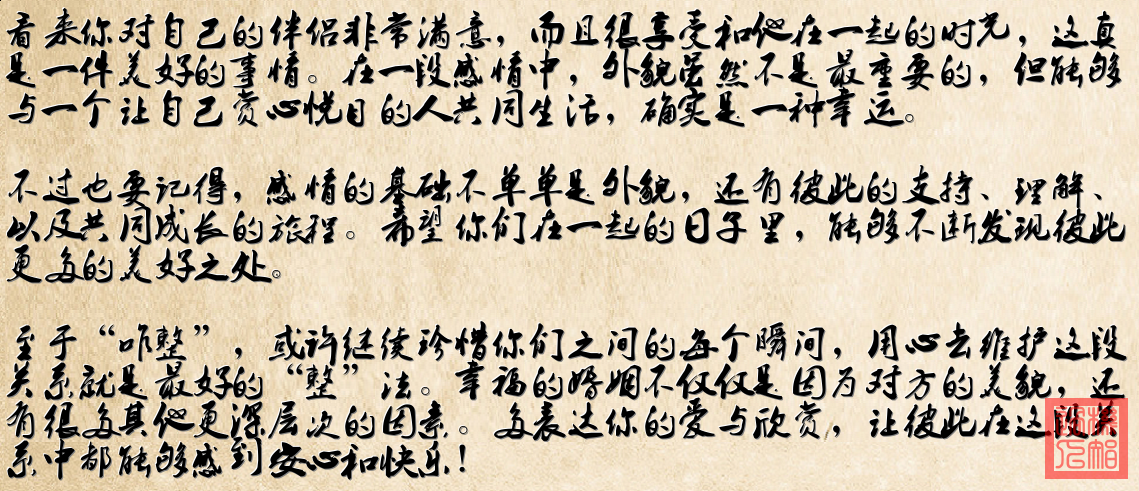 看来你对自己的伴侣非常满意，而且很享受和他在一起的时光，这真
是一件美好的事情。在一段感情中，外貌虽然不是最重要的，但能够
与一个让自己赏心悦目的人共同生活，确实是一种幸运。
不过也要记得，感情的基础不单单是外貌，还有彼此的支持、理解、
以及共同成长的旅程。希望你们在一起的日子里，能够不断发现彼此
更多的美好之处。
至于“咋整”，或许继续珍惜你们之间的每个瞬间，用心去维护这段
关系就是最好的“整”法。幸福的婚姻不仅仅是因为对方的美貌，还
有很多其他更深层次的因素。多表达你的爱与欣赏，让彼此在这段关
系中都能够感到安心和快乐！